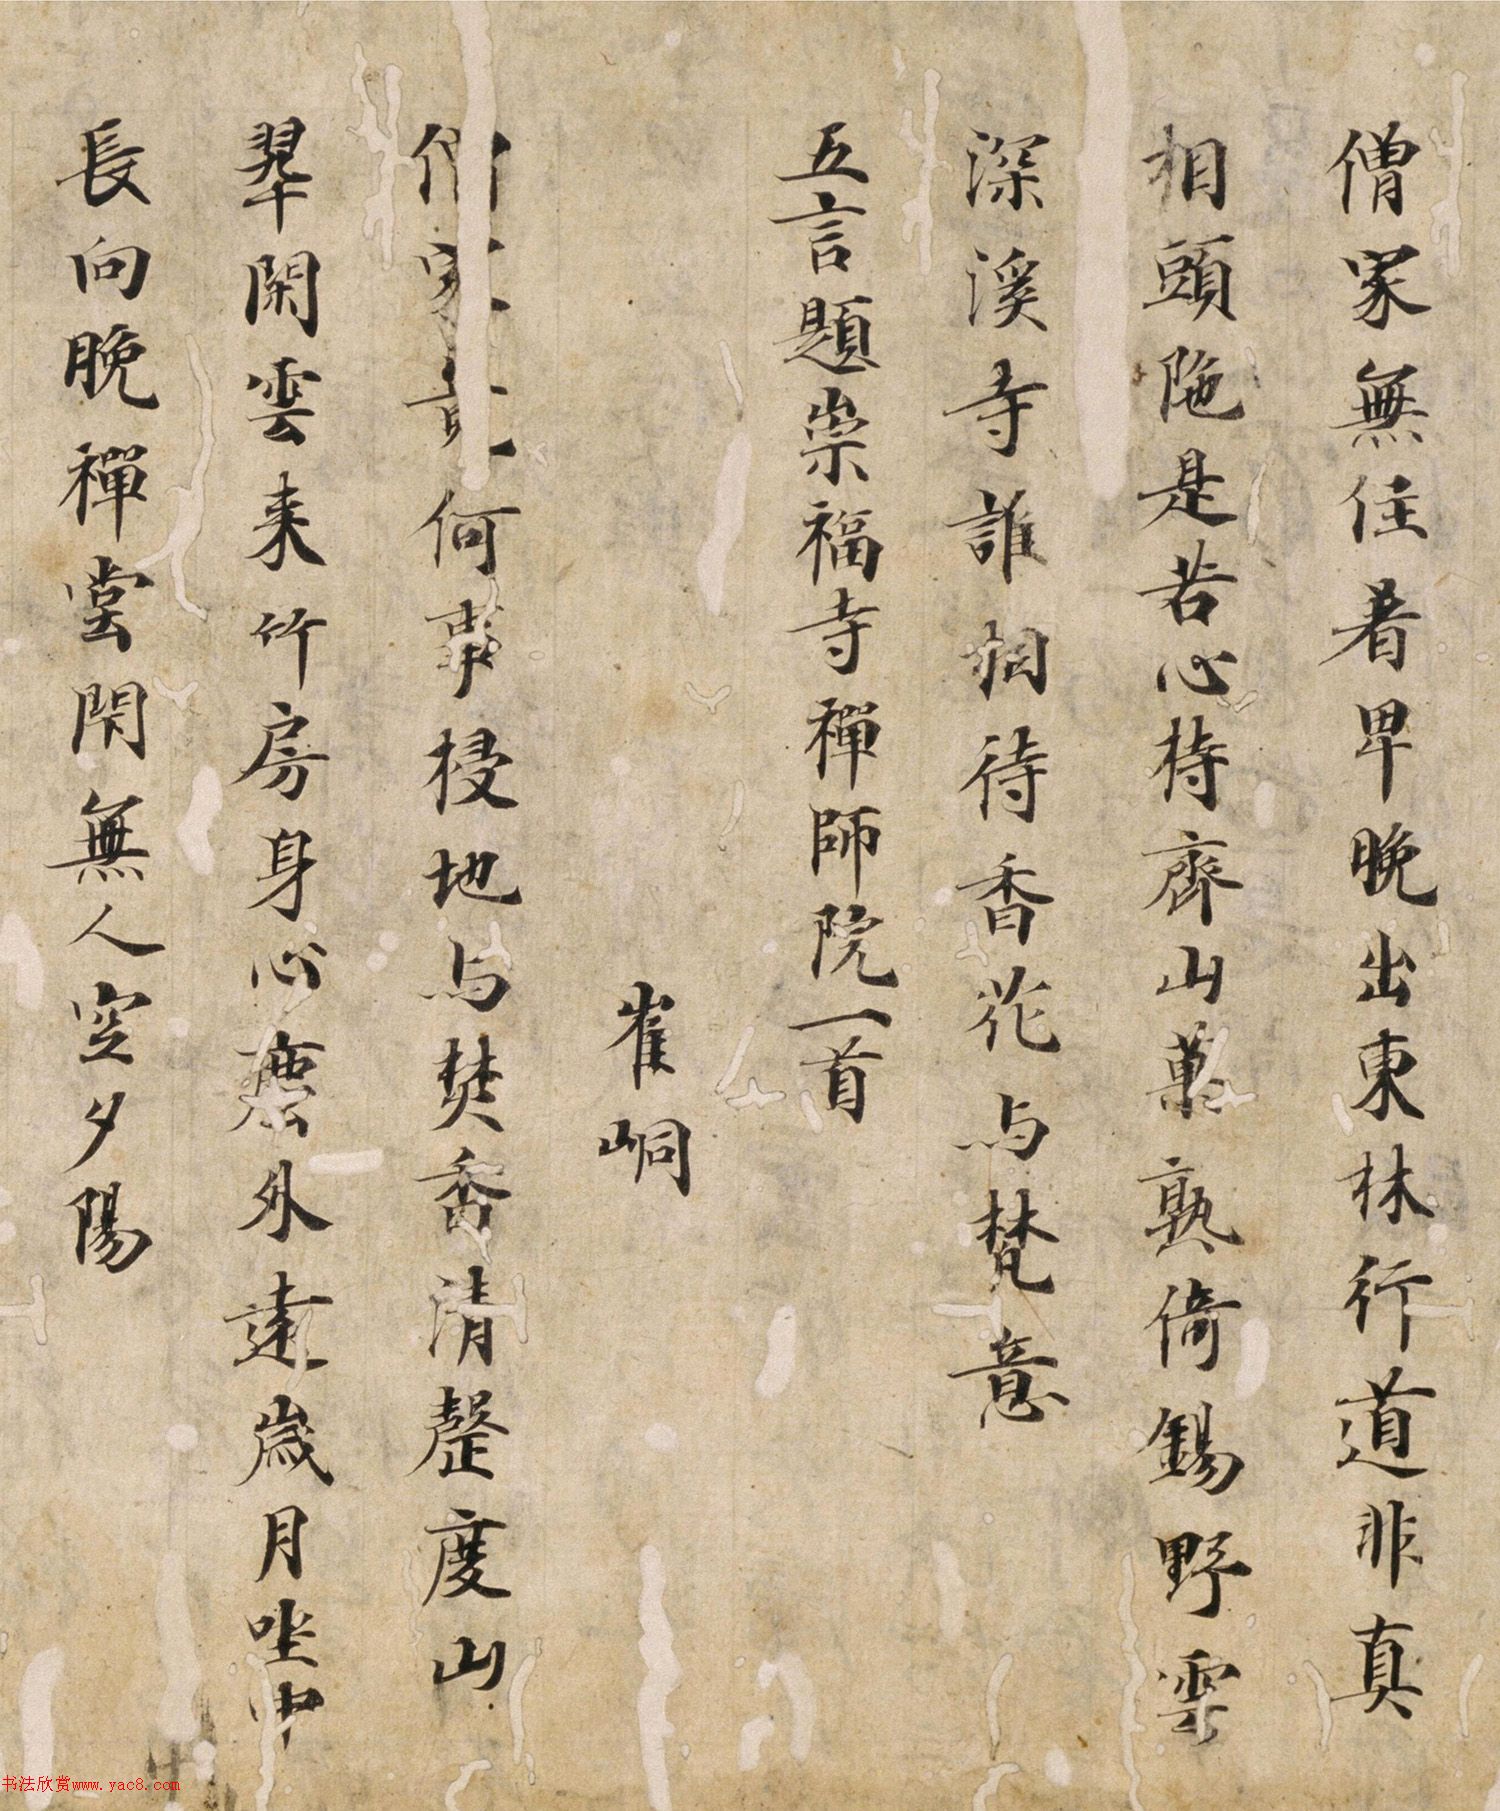 僧家無住着早晚出東林行道非真
相頭陁是苦心持齊山菓熟倚錫野雲
深溪寺誰相待香花与梵意
五言題崇福寺禪師院一首
崔峒
僧家竟何事掃地与焚香清磬度山
翠閑雲来竹房身心塵外遠歲月坐中
長向晚禪堂閇無人空夕陽
书法欣赏www.yac8.com